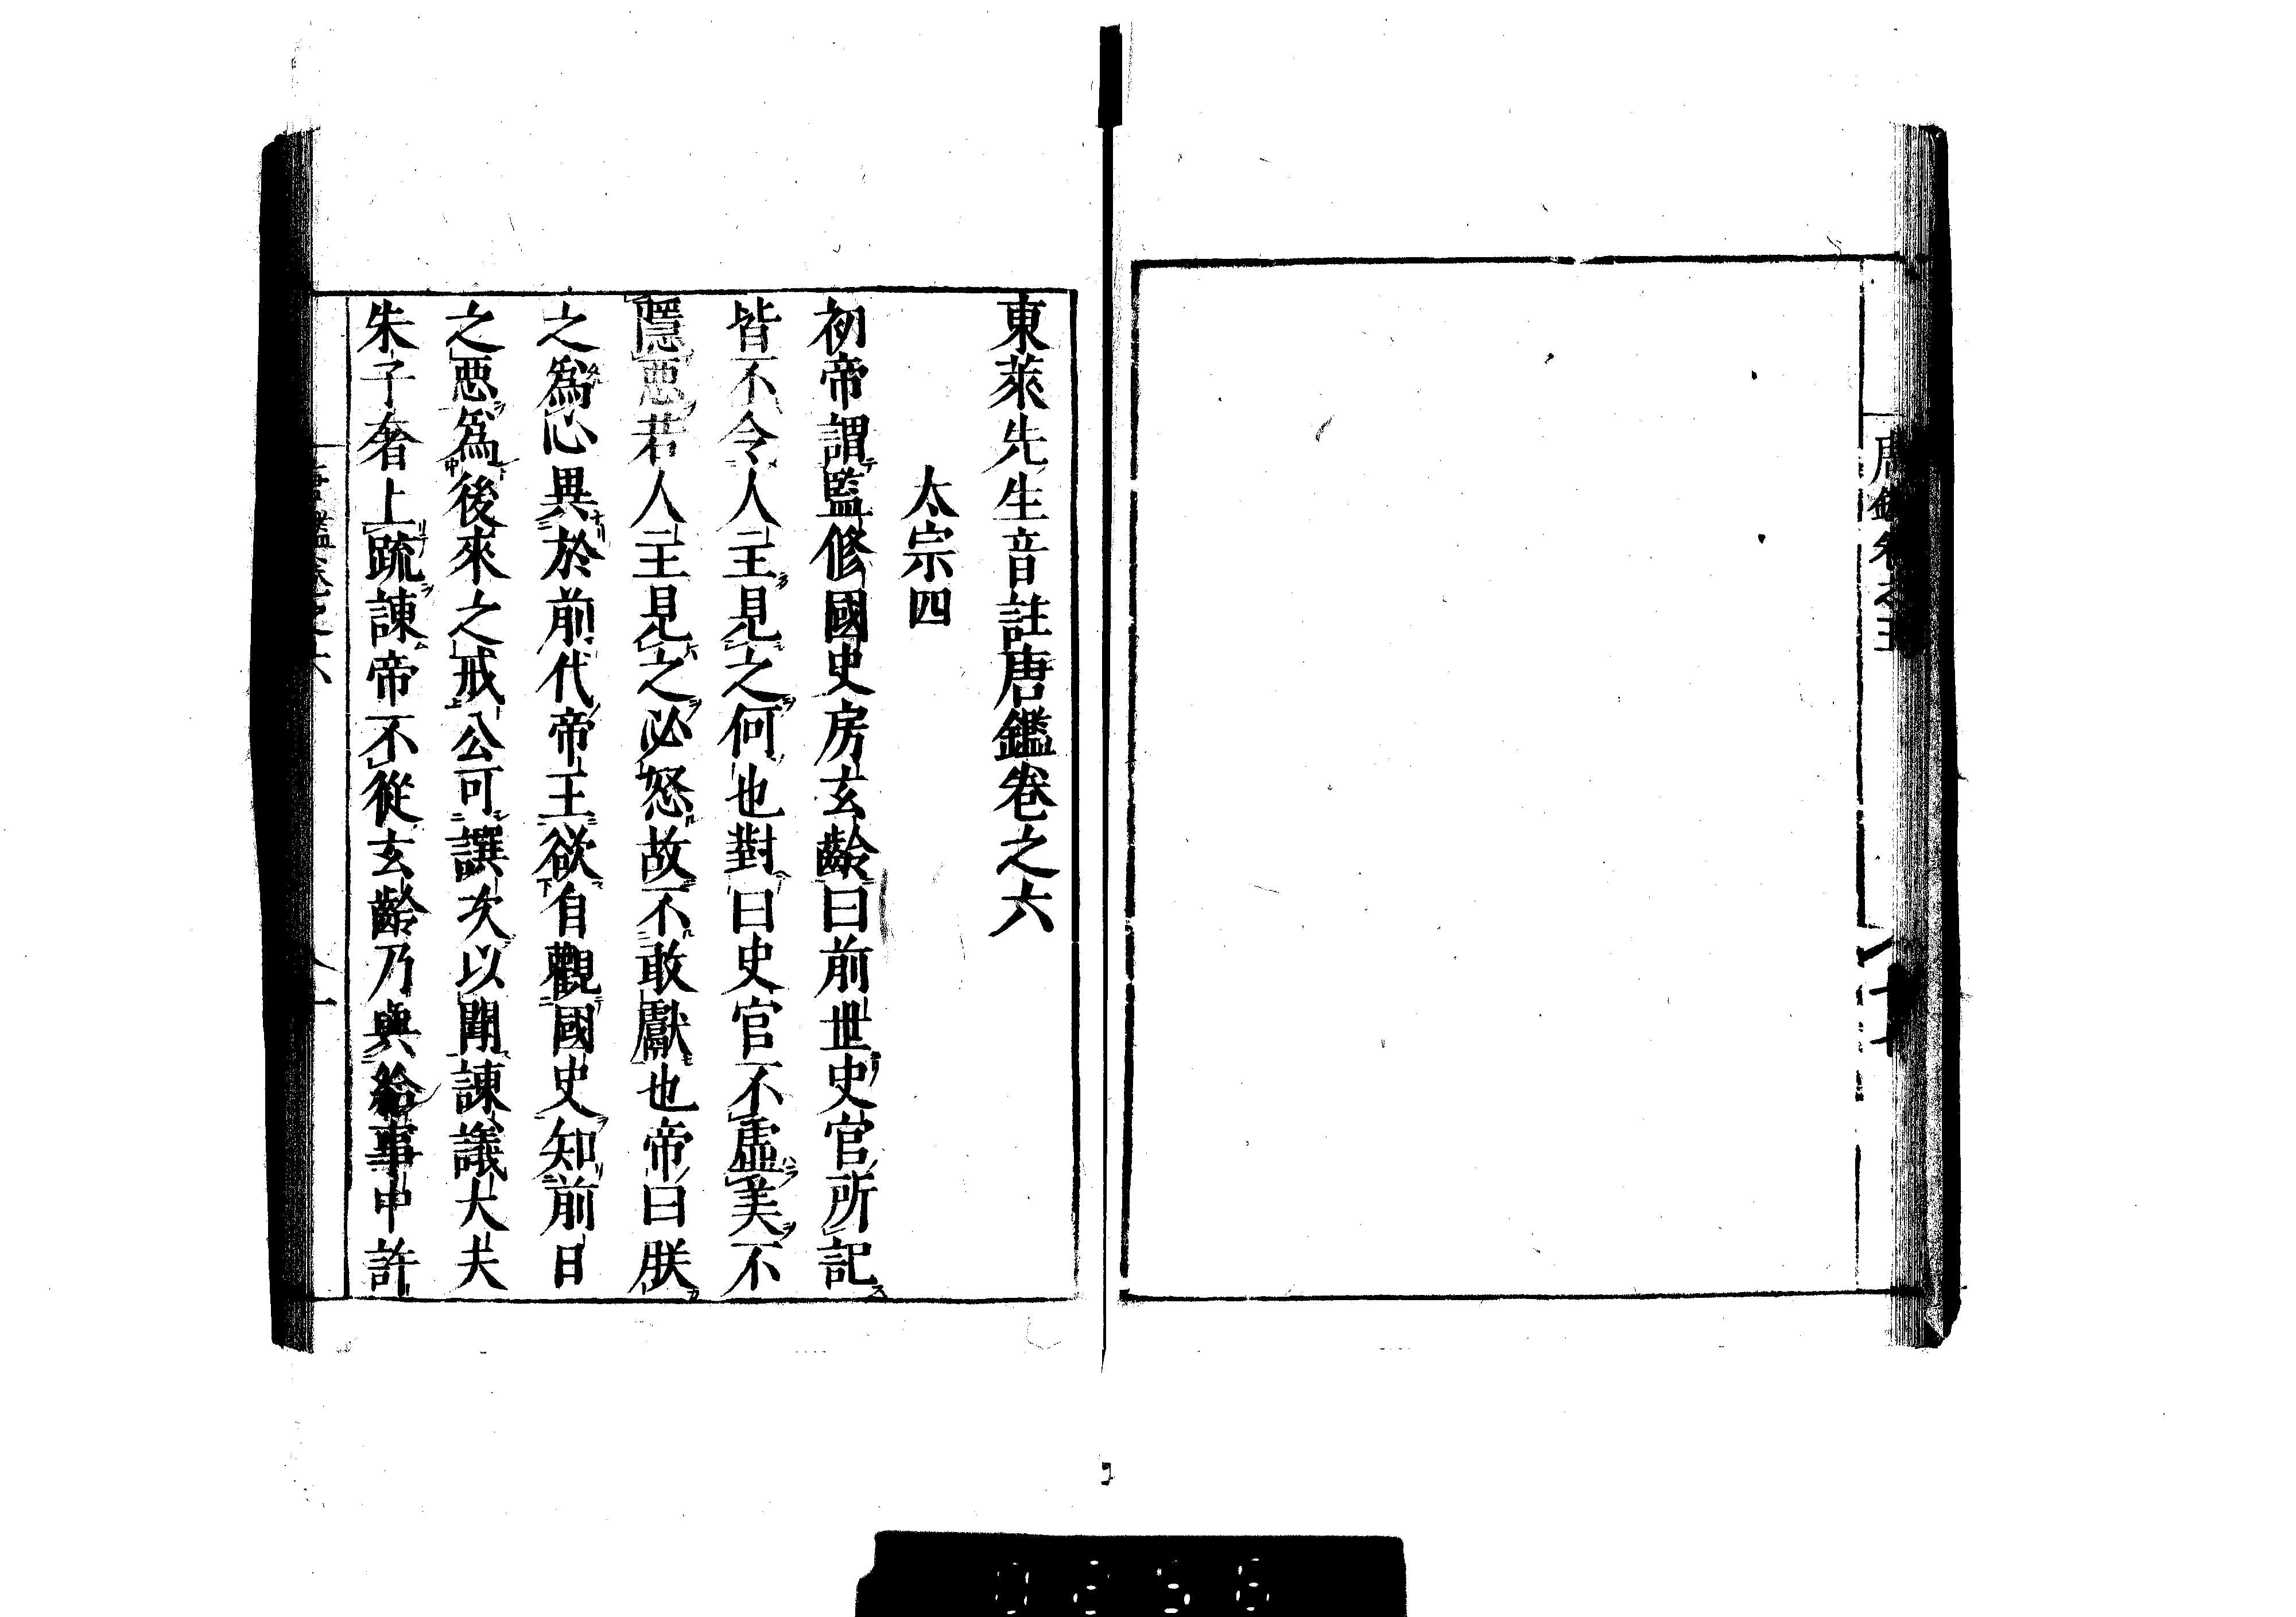 唐鑑卷之五
東萊先生音註唐鑑卷之六
太宗四
初帝謂監修國史房玄齡曰前世史官所記
皆不令人主見之何也對曰史官不虛美不
隱惡若人主見之必怒故不敢獻也帝曰朕
之爲心異於前代帝王欲自觀國史知前日
之惡爲後來之戒公可譔次以聞諫議大夫
朱子奢上疏諫帝不從玄齡乃與給事中許